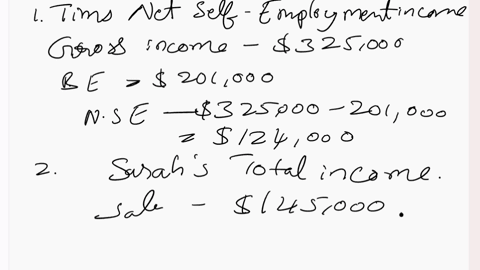 1. Tims Net Self-Employment income
Gross income - $325,000
B E = $201,000
N.SE - $325,000 - 201,000
= $124,000
2. Sarah's Total income.
sale - $145,000.